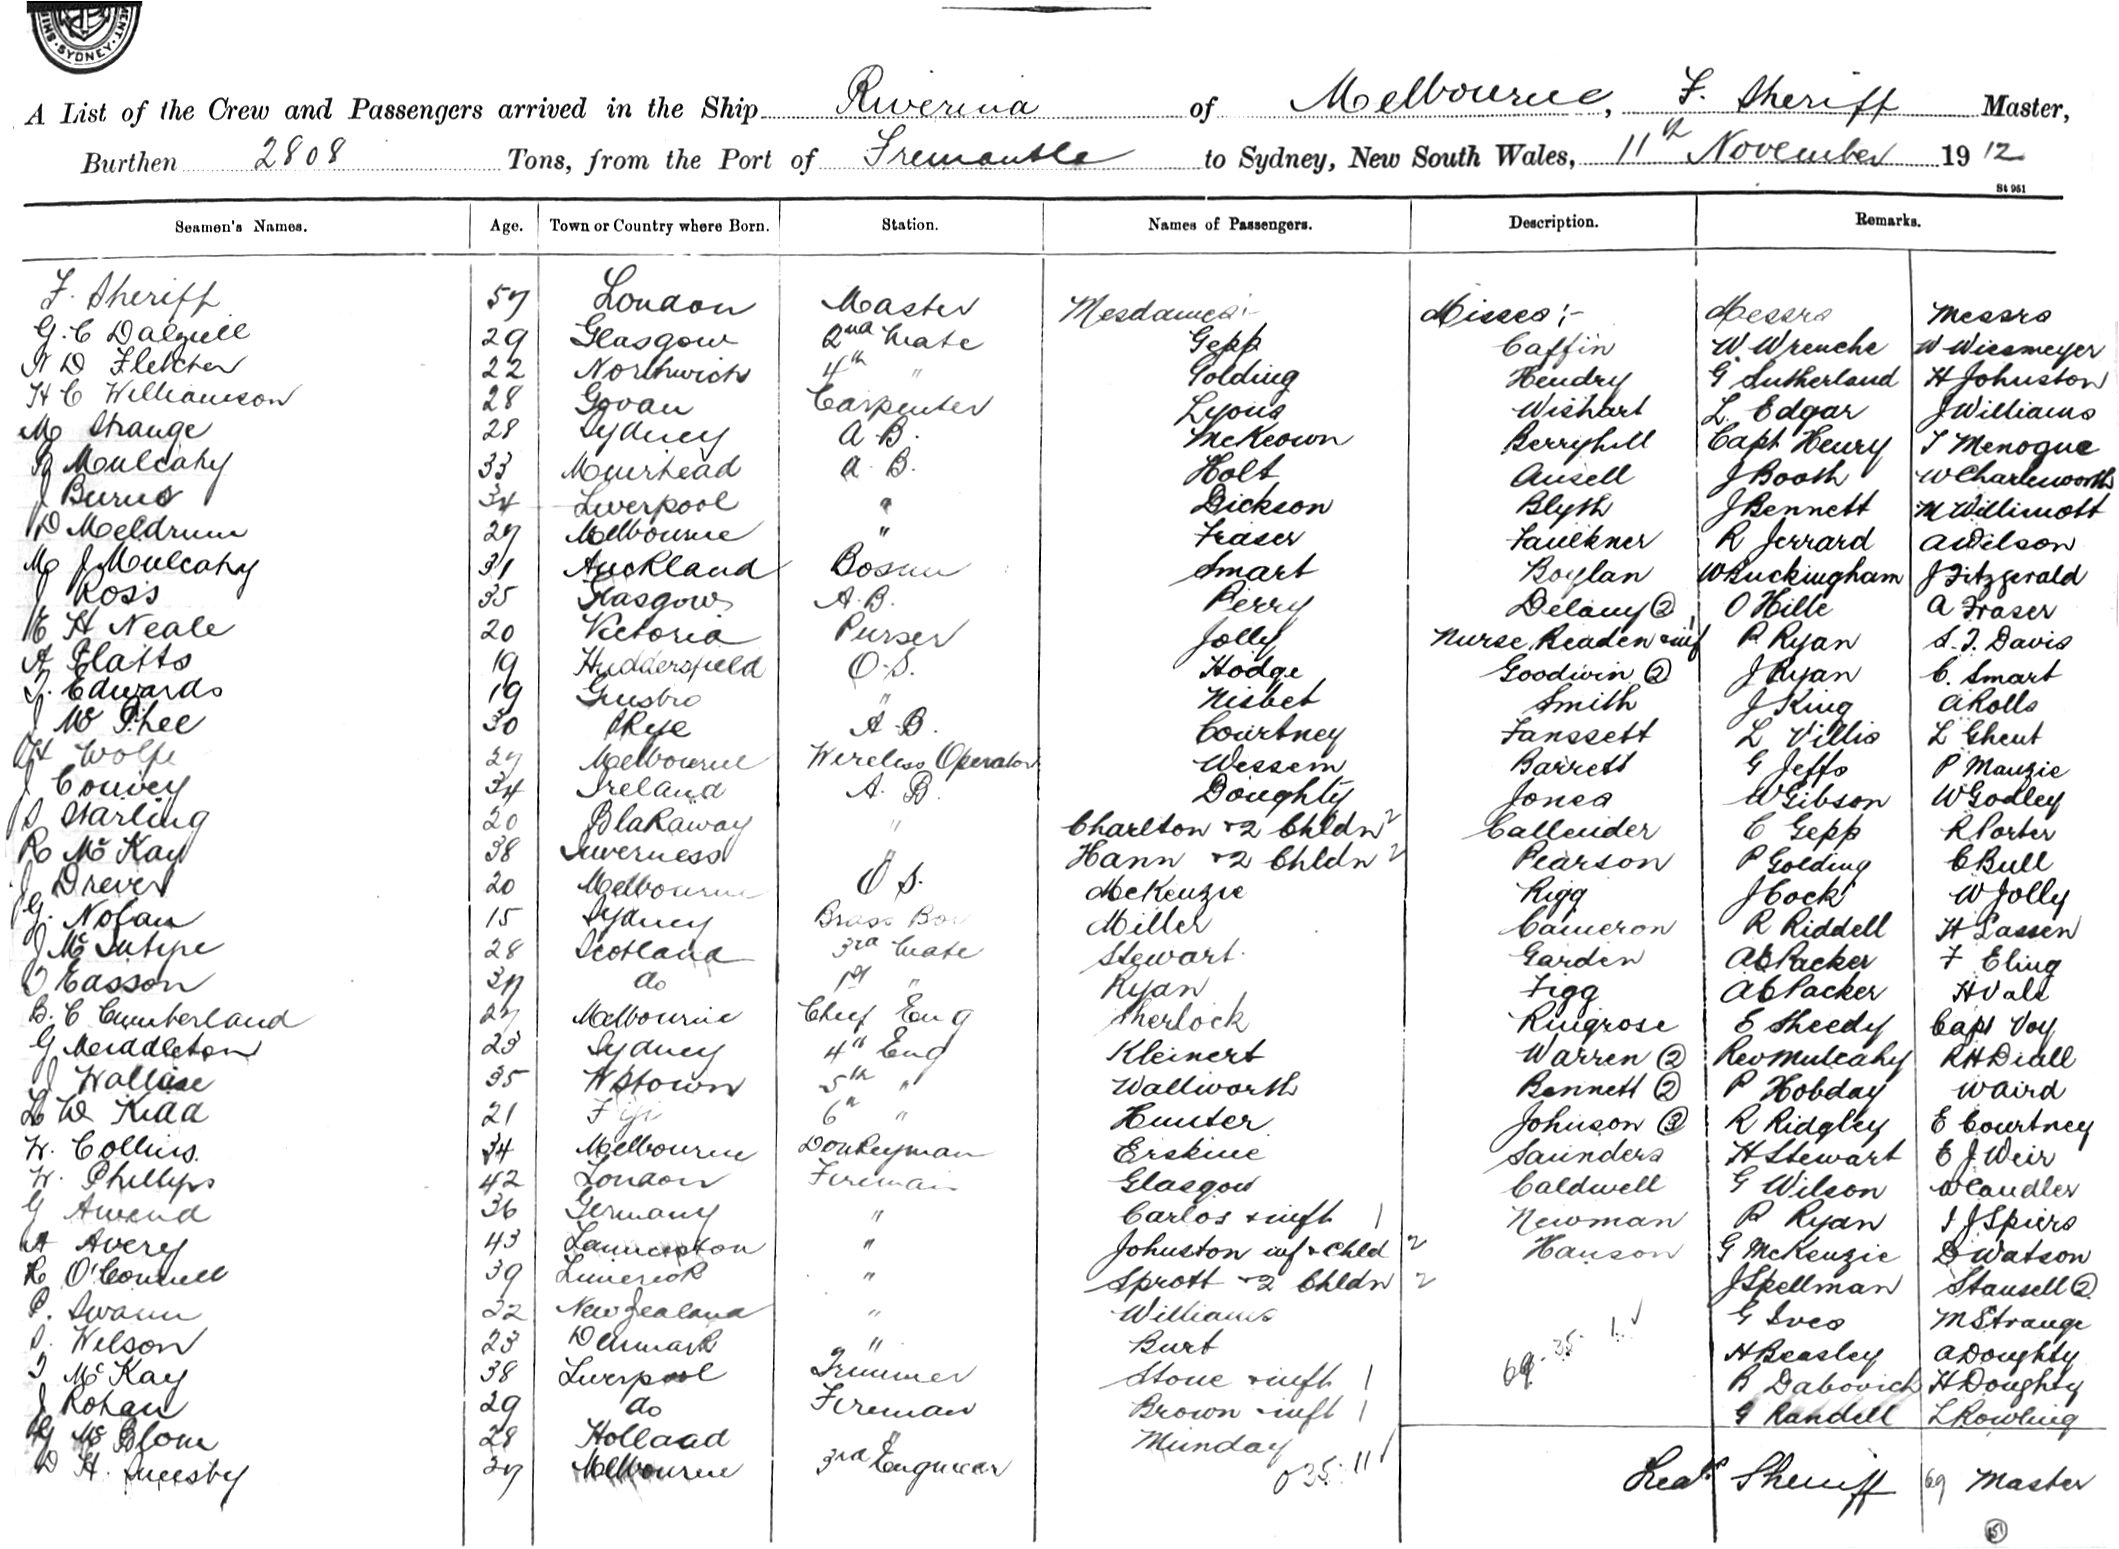 SYDNEY
A List of the Crew and Passengers arrived in the Ship Riverina of Melbourne, F. Sheriff Master,
Burthen 2808 Tons, from the Port of Fremantle to Sydney, New South Wales, 11th November 1912
St 961
Seamen's Names. Age. Town or Country where Born. Station. Names of Passengers. Description. Remarks.
F. Sheriff 57 London Master Mesdames:- Misses:- Messrs Messrs
G. C Dalziell 29 Glasgow 2nd Mate Gepp Caffin W Wrenche W Wiesmeyer
N D Fletcher 22 Northwich 4th " Golding Hendry G Sutherland H Johnston
H C Williamson 28 Govan Carpenter Lyons Wishart L. Edgar J Williams
M Strange 28 Sydney A B. McKeown Berryhill Capt Henry T Menogue
Mulcahy 33 Muirhead A. B. Holt Ansell J Booth W Charlesworth
J Burns 34 Liverpool " Dickson Blyth J Bennett M Willimott
D Meldrum 27 Melbourne " Fraser Faulkner R Jerrard A Wilson
M J Mulcahy 31 Auckland Bosun Smart Boylan W Buckingham J Fitzgerald
J Ross 35 Glasgow A. B. Perry Delany 2 O Hille A Fraser
E H Neale 20 Victoria Purser Jolly Nurse Readen & inf 1 P Ryan S. T. Davis
A Platts 19 Huddersfield O. S. Hodge Goodwin 2 J Ryan C. Smart
T. Edwards 19 " Nisbet Smith J King A Rolls
J Mc Phee 30 Skye A. B. Courtney Fanssett L Villis L Ghent
H Wolfe 27 Melbourne Wireless Operator Wessem Barrett G Jeffs P Manzie
J Convey 34 Ireland A. B. Doughty Jones W Gibson W Godley
S Starling 20 Blakaway " Charlton & 2 Chldn 2 Callender C Gepp R Porter
R McKay 38 Inverness " Hann & 2 Chldn 2 Pearson P Golding C Bull
J Drever 20 Melbourne O S. McKenzie Rigg J Cock W Jolly
G. Nolan 15 Sydney Brass Boy Miller Cameron R Riddell H Lassen
J McIntyre 28 Scotland 3rd Mate Stewart Garden A E Packer F Eling
Easson 37 do 1st " Ryan Figg A C Packer H Vale
B. C Cumberland 27 Melbourne Chief Eng Sherlock Ringrose E Sheedy Capt Voy
G Meiddleton 23 Sydney 4th Eng Kleinert Warren 2 Rev Mulcahy R H Diall
J Wallace 35 W'town 5th " Wallworth Bennett 2 P Hobday W Aird
L W Kidd 21 Fiji 6th " Hunter Johnson 3 R Ridgley E Courtney
W. Collins 34 Melbourne Donkeyman Erskine Saunders H Stewart E J Weir
W. Phillips 42 London Fireman Glasgow Caldwell G Wilson W Candler
G Amend 36 Germany " Carlos & inft 1 Newman P Ryan J Spiers
A Avery 43 Launceston " Johnston inf & Chld 2 Hanson G McKenzie D Watson
R O'Connell 39 Limerick " Sprott & 2 Chldn 2 J Spellman Stansell 2
P. Swann 22 New Zealand " Williams G Ives M Strange
S. Wilson 23 Denmark " Burt 69. 35. 1 H Beasley A Doughty
T McKay 38 Liverpool Trimmer Stone & inft 1 R Dabovich H Doughty
J Rohan 29 do Fireman Brown & inft 1 G Randell L Rowling
Mc Blom 28 Holland " Munday
D H. 37 Melbourne 3rd Engineer 35. 11 Sheriff 69 Master
151